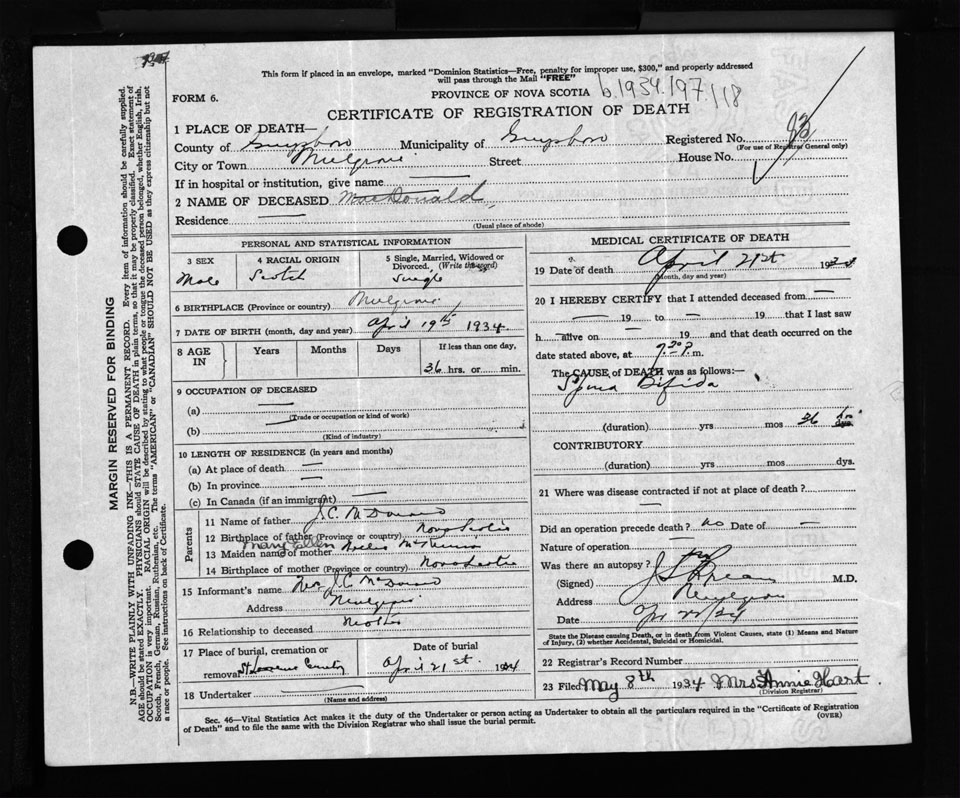 This form if placed in an envelope, marked "Dominion Statistics—Free, penalty for improper use, $300," and properly addressed
will pass through the Mail "FREE"
PROVINCE OF NOVA SCOTIA b.1934.197.118
FORM 6.
CERTIFICATE OF REGISTRATION OF DEATH
1 PLACE OF DEATH—
County of Guysboro Municipality of Guysboro Registered No.
(For use of Registrar General only)
City or Town Mulgrave Street House No.
If in hospital or institution, give name
2 NAME OF DECEASED MacDonald
Residence
(Usual place of abode)
PERSONAL AND STATISTICAL INFORMATION
3 SEX
Male
4 RACIAL ORIGIN
Scotch
5 Single, Married, Widowed or
Divorced. (Write the word)
Single
6 BIRTHPLACE (Province or country) Mulgrave
7 DATE OF BIRTH (month, day and year) April 19th 1934
8 AGE
IN
Years Months Days If less than one day,
36 hrs. or min.
9 OCCUPATION OF DECEASED
(a)
(Trade or occupation or kind of work)
(b)
(Kind of industry)
10 LENGTH OF RESIDENCE (in years and months)
(a) At place of death
(b) In province
(c) In Canada (if an immigrant)
Parents
11 Name of father J.C. McDonald
12 Birthplace of father (Province or country) Nova Scotia
13 Maiden name of mother Mary Ellen
14 Birthplace of mother (Province or country) Nova Scotia
15 Informant's name Mrs J.C. McDonald
Address Mulgrave
16 Relationship to deceased Mother
17 Place of burial, cremation or
removal St Lawrence Cemetery
Date of burial
April 21st. 1934
18 Undertaker
(Name and address)
MEDICAL CERTIFICATE OF DEATH
19 Date of death April 21st 193
(Month, day and year)
20 I HEREBY CERTIFY that I attended deceased from
19 to 19 that I last saw
h alive on 19 and that death occurred on
date stated above, at 7.30 P. m.
The CAUSE of DEATH was as follows:—
Spina Bifida
(duration) yrs mos 36 hrs
CONTRIBUTORY
(duration) yrs mos dys.
21 Where was disease contracted if not at place of death?
Did an operation precede death? no Date of
Nature of operation
Was there an autopsy? no
(Signed) M.D.
Address Mulgrave
Date
State the Disease causing Death, or in death from Violent Causes, state (1) Means and Nature
of Injury, (2) whether Accidental, Suicidal or Homicidal.
22 Registrar's Record Number
23 Filed May 8th 1934 Mrs Annie Hart.
(Division Registrar)
Sec. 46—Vital Statistics Act makes it the duty of the Undertaker or person acting as Undertaker to obtain all the particulars required in the "Certificate of Registration
of Death" and to file the same with the Division Registrar who shall issue the burial permit. (OVER)
MARGIN RESERVED FOR BINDING
N.B.—WRITE PLAINLY WITH UNFADING INK—THIS IS A PERMANENT RECORD. Every item of information should be carefully supplied.
AGE should be stated EXACTLY. PHYSICIANS should STATE CAUSE OF DEATH in plain terms, so that it may be properly classified. Exact statement of
OCCUPATION is very important. RACIAL ORIGIN will be described by stating to what people or tongue the deceased person belonged, whether English, Irish,
Scotch, French, German, Russian, Ruthenian, etc. The terms "AMERICAN" or "CANADIAN" SHOULD NOT BE USED as they express citizenship but not
a race or people. See instructions on back of Certificate.